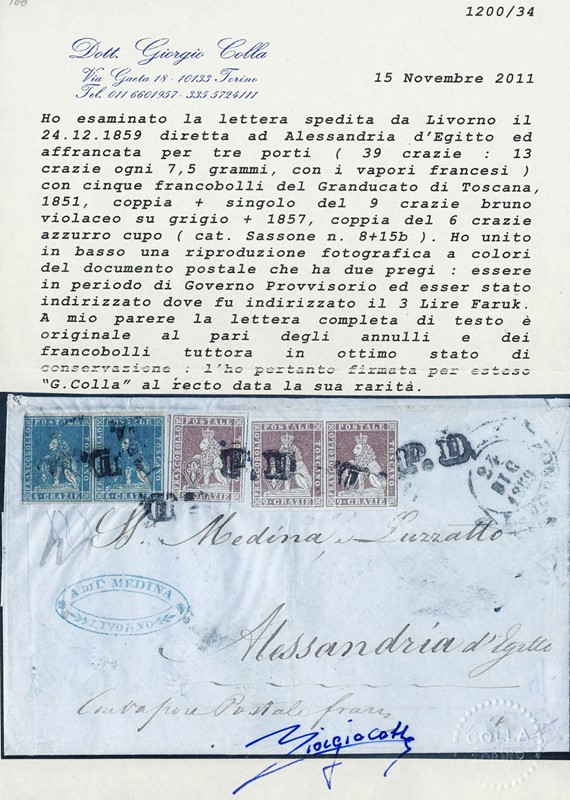 1200/34
Dott. Giorgio Colla
Via Gaeta 18 - 10133 Torino
Tel. 011 6601957 - 335 5724111
15 Novembre 2011
Ho esaminato la lettera spedita da Livorno il
24.12.1859 diretta ad Alessandria d'Egitto ed
affrancata per tre porti ( 39 crazie : 13
crazie ogni 7,5 grammi, con i vapori francesi )
con cinque francobolli del Granducato di Toscana,
1851, coppia + singolo del 9 crazie bruno
violaceo su grigio + 1857, coppia del 6 crazie
azzurro cupo ( cat. Sassone n. 8+15b ). Ho unito
in basso una riproduzione fotografica a colori
del documento postale che ha due pregi : essere
in periodo di Governo Provvisorio ed esser stato
indirizzato dove fu indirizzato il 3 Lire Faruk.
A mio parere la lettera completa di testo è
originale al pari degli annulli e dei
francobolli tuttora in ottimo stato di
conservazione : l'ho pertanto firmata per esteso
"G.Colla" al recto data la sua rarità.
FRANCOBOLLO POSTALE TOSCANO 6 CRAZIE
FRANCOBOLLO POSTALE TOSCANO 6 CRAZIE
FRANCOBOLLO POSTALE TOSCANO 9 CRAZIE
FRANCOBOLLO POSTALE TOSCANO 9 CRAZIE
FRANCOBOLLO POSTALE TOSCANO 9 CRAZIE
P.D.
P.D.
P.D.
DIC
1859
Medina e Luzzatto
A DI P. MEDINA
LIVORNO
Alessandria d'Egitto
Con vapore Postale franc
Giorgio Colla
COLLA
TORINO